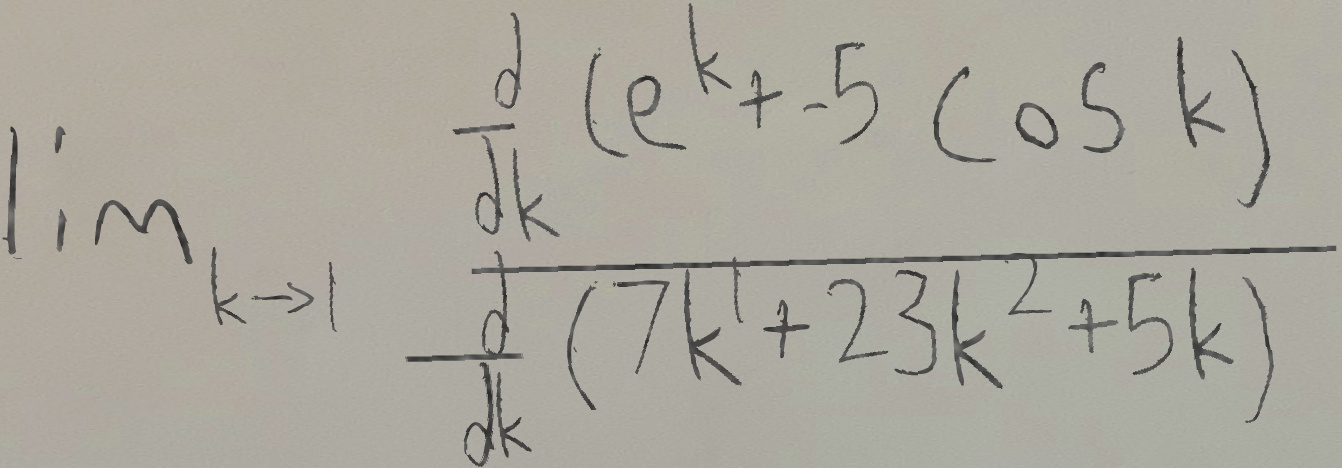 \lim_{k \to 1} \frac{\frac{d}{dk}(e^k + -5 \cos k)}{\frac{d}{dk}(7k^1 + 23k^2 + 5k)}